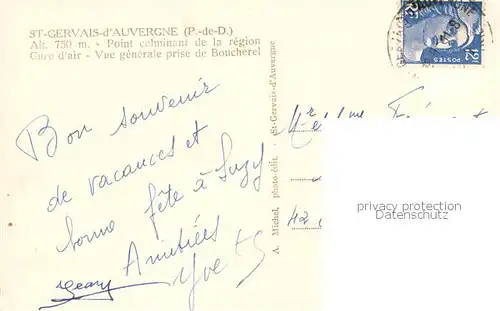 ST-GERVAIS-d'AUVERGNE (P.-de-D.)
Alt. 750 m. - Point culminant de la région
Cure d'air - Vue générale prise de Boucherel
Bon souvenir
de vacances et
bonne fête à Suzy
Amitiés
Yvette
Jeany
A. Michel, photo-édit. - St-Gervais-d'Auvergne
POSTES
12F
Mr et Mme
42
privacy protection
Datenschutz